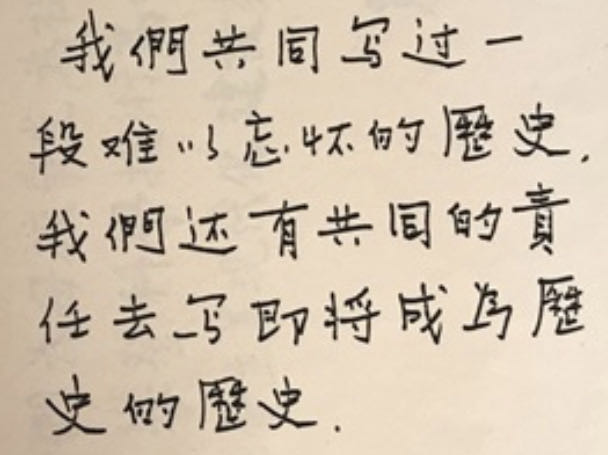 我們共同写过一
段难以忘怀的歷史.
我們还有共同的責
任去写即将成为歷
史的歷史.